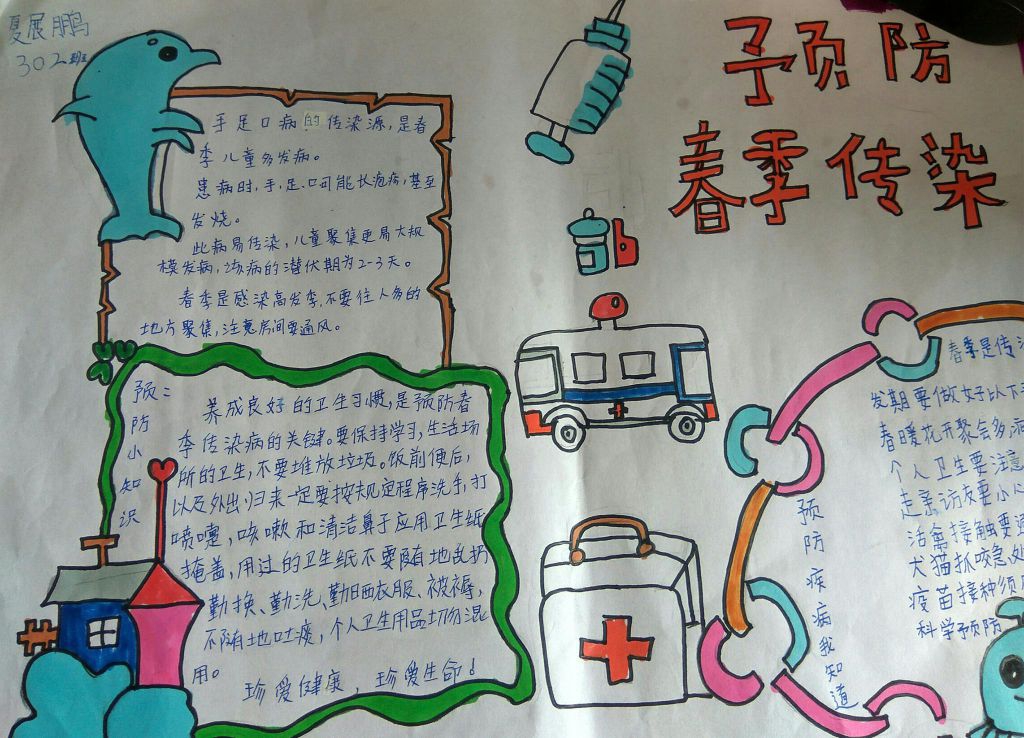 夏展鹏
302班
予预防
春季传染
手足口病的传染源,是春
季儿童多发病。
患病时,手,足.口可能长疱疹,甚至
发烧。
此病易传染,儿童聚集更易大规
模发病,该病的潜伏期为2-3天。
春季是感染高发季,不要往人多的
地方聚集,注意房间要通风。
预防小知识
养成良好的卫生习惯,是预防春
季传染病的关键。要保持学习,生活场
所的卫生,不要堆放垃圾。饭前便后,
以及外出归来一定要按规定程序洗手,打
喷嚏,咳嗽和清洁鼻子应用卫生纸
掩盖,用过的卫生纸不要随地乱扔
勤换、勤洗、勤晒衣服、被褥,
不随地吐痰,个人卫生用品切勿混
用。
珍爱健康,珍爱生命!
预防疾病我知道
春季是传
发期要做好以下
春暖花开聚会多
个人卫生要注意
走亲访友要小心
活禽接触要
犬猫抓咬急处
疫苗接种须
科学预防